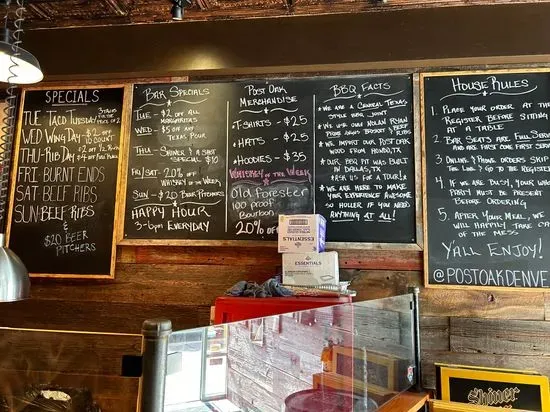 SPECIALS
TUE TACO TUESDAY
3 TACOS
FOR THE
PRICE OF 2
WED WING DAY
$2 OFF
10 COUNT
THU-RIB DAY
FRI BURNT ENDS
SAT BEEF RIBS
SUN BEEF RIBS
&
$20 BEER
PITCHERS
BAR SPECIALS
TUE - $2 OFF ALL
MARGARITAS
WED - $5 OFF ANY
TEXAS POUR
THU - SHINER & A SHOT
SPECIAL $10
FRI/SAT - 20% OFF
WHISKEY OF THE WEEK
SUN - $20 BEER PITCHERS
HAPPY HOUR
3-6PM EVERYDAY
POST OAK
MERCHANDISE
T-SHIRTS - $25
HATS - $25
HOODIES - $35
WHISKEY OF THE WEEK
Old Forester
100 proof
Bourbon
20% OFF
BBQ FACTS
WE ARE A CENTRAL TEXAS
STYLE BBQ JOINT
WE USE ONLY NOLAN RYAN
PRIME ANGUS BRISKET & BEEF RIBS
WE IMPORT OUR POST OAK
FROM HONDO, TX
OUR BBQ PIT WAS BUILT
IN DALLAS, TX
ASK US FOR A TOUR!
WE ARE HERE TO MAKE
YOUR EXPERIENCE AWESOME
SO HOLLER IF YOU NEED
ANYTHING AT ALL!
HOUSE RULES
1. PLACE YOUR ORDER AT THE
REGISTER BEFORE SITTING
AT A TABLE
2. BAR SEATS ARE FULL
AND ARE FIRST COME FIRST
3. ONLINE & PHONE ORDERS SKIP
THE LINE & GO TO THE
4. IF WE ARE BUSY, YOUR WHOLE
PARTY MUST BE PRESENT
BEFORE ORDERING
5. AFTER YOUR MEAL, WE
WILL HAPPILY TAKE CARE
OF THE MESS
Y'ALL ENJOY!
@POSTOAKDENVE
ESSENTIALS
ESSENTIALS
Shiner